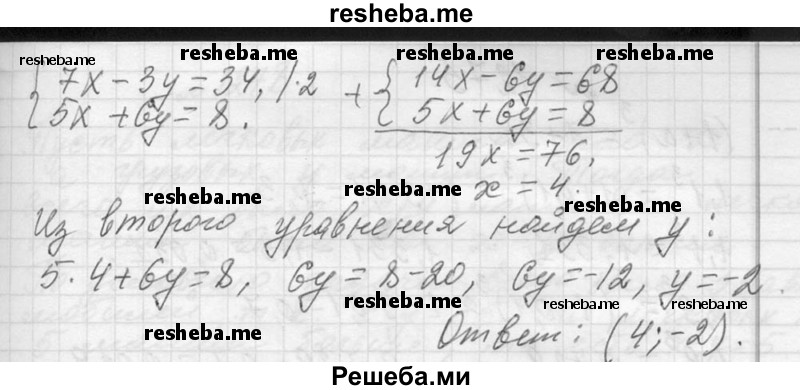 resheba.me
resheba.me resheba.me resheba.me
{ 7x - 3y = 34, | ·2
5x + 6y = 8.
+ { 14x - 6y = 68
5x + 6y = 8
19x = 76,
x = 4.
resheba.me resheba.me
Из второго уравнения найдем y:
resheba.me
5 · 4 + 6y = 8, 6y = 8 - 20, 6y = -12, y = -2.
resheba.me resheba.me resheba.me
resheba.me
Ответ: (4; -2).
Решеба.ми